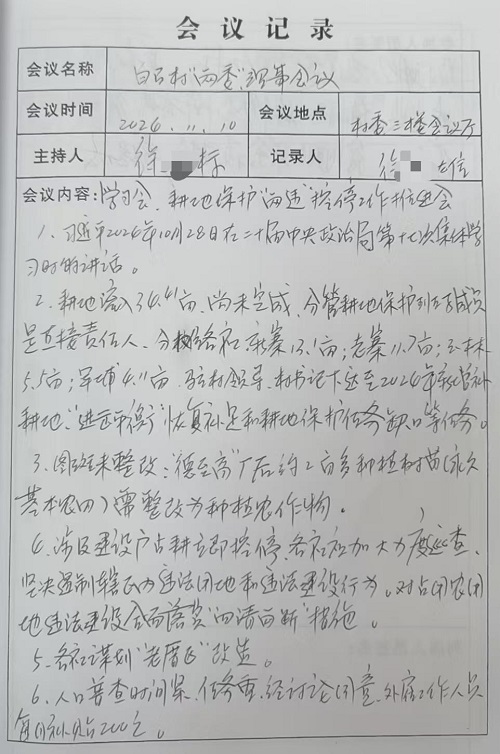 会议记录
会议名称 白石村"两委"理事会议
会议时间 2024.11.10 会议地点 村委三楼会议厅
主持人 徐 标 记录人 徐
会议内容: 学习会、耕地保护"两违"控停工作推进会
1、习近平2024年10月28日在二十届中央政治局第十七次集体学
习时的讲话。
2、耕地流入34.41亩,尚未完成,分管耕地保护到班成员
是直接责任人,分 各社 寨13.1亩;老寨11.7亩;
5.5亩;军埔4.11亩, 村领导、村书记下达至2024年
耕地"进出平衡"恢复补足和耕地保护任务缺口等任务。
3、图斑未整改:"德至高"厂后约2亩多种植树苗(永久
基本农田)需整改为种植农作物。
4、涉及建设户占耕立即控停,各社加大力度巡查,
坚决遏制辖区内违法用地和违法建设行为。对占用农用
地违法建设全面落实"四清两断"措施。
5、各社谋划"老厝区"改造。
6、人口普查时间紧、任务重,经讨论同意,外宿工作人员
每日补贴200元。